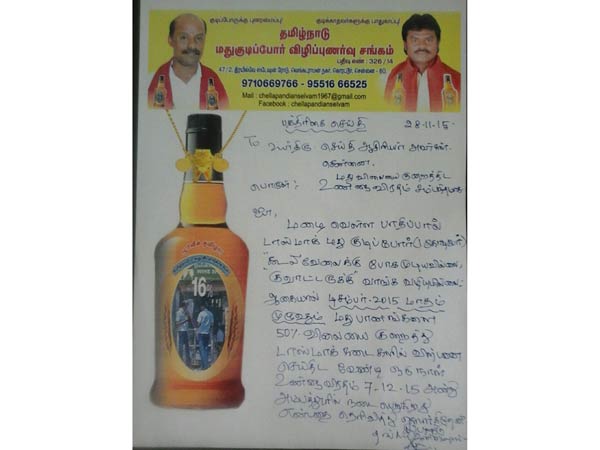 குடிப்போருக்கு புனரமைப்பு! குடிக்காதவர்களுக்கு பாதுகாப்பு!
தமிழ்நாடு
மதுகுடிப்போர் விழிப்புணர்வு சங்கம்
பதிவு எண் : 326/14
9710669766 - 95516 66525
Mail : chellapandianselvam1967@gmail.com
Facebook : chellapandianselvam
பத்திரிகை செய்தி 28-11-15
To
உயர்திரு செய்தி ஆசிரியர் அவர்கள்
சென்னை.
பொருள் : மது விலையை குறைத்திட
உண்ணாவிரதம்
ஐயா,
மழை வெள்ள பாதிப்பால்
டாஸ்மாக் மது குடிப்போர்
கூலி வேலைக்கு போகமுடியவில்லை.
"குவாட்டருக்கு" வாங்க வழியில்லை.
ஆகையால் டிசம்பர்-2015 மாதம்
முழுவதும் மதுபானங்களை
50% விலையை குறைத்து
டாஸ்மாக் கடைகளில் விற்பனை
செய்திட வேண்டி ஒரு நாள்
உண்ணாவிரதம் 7-12-15 அன்று
நடைபெறுகிறது
என்பதை தெரிவித்து
16%